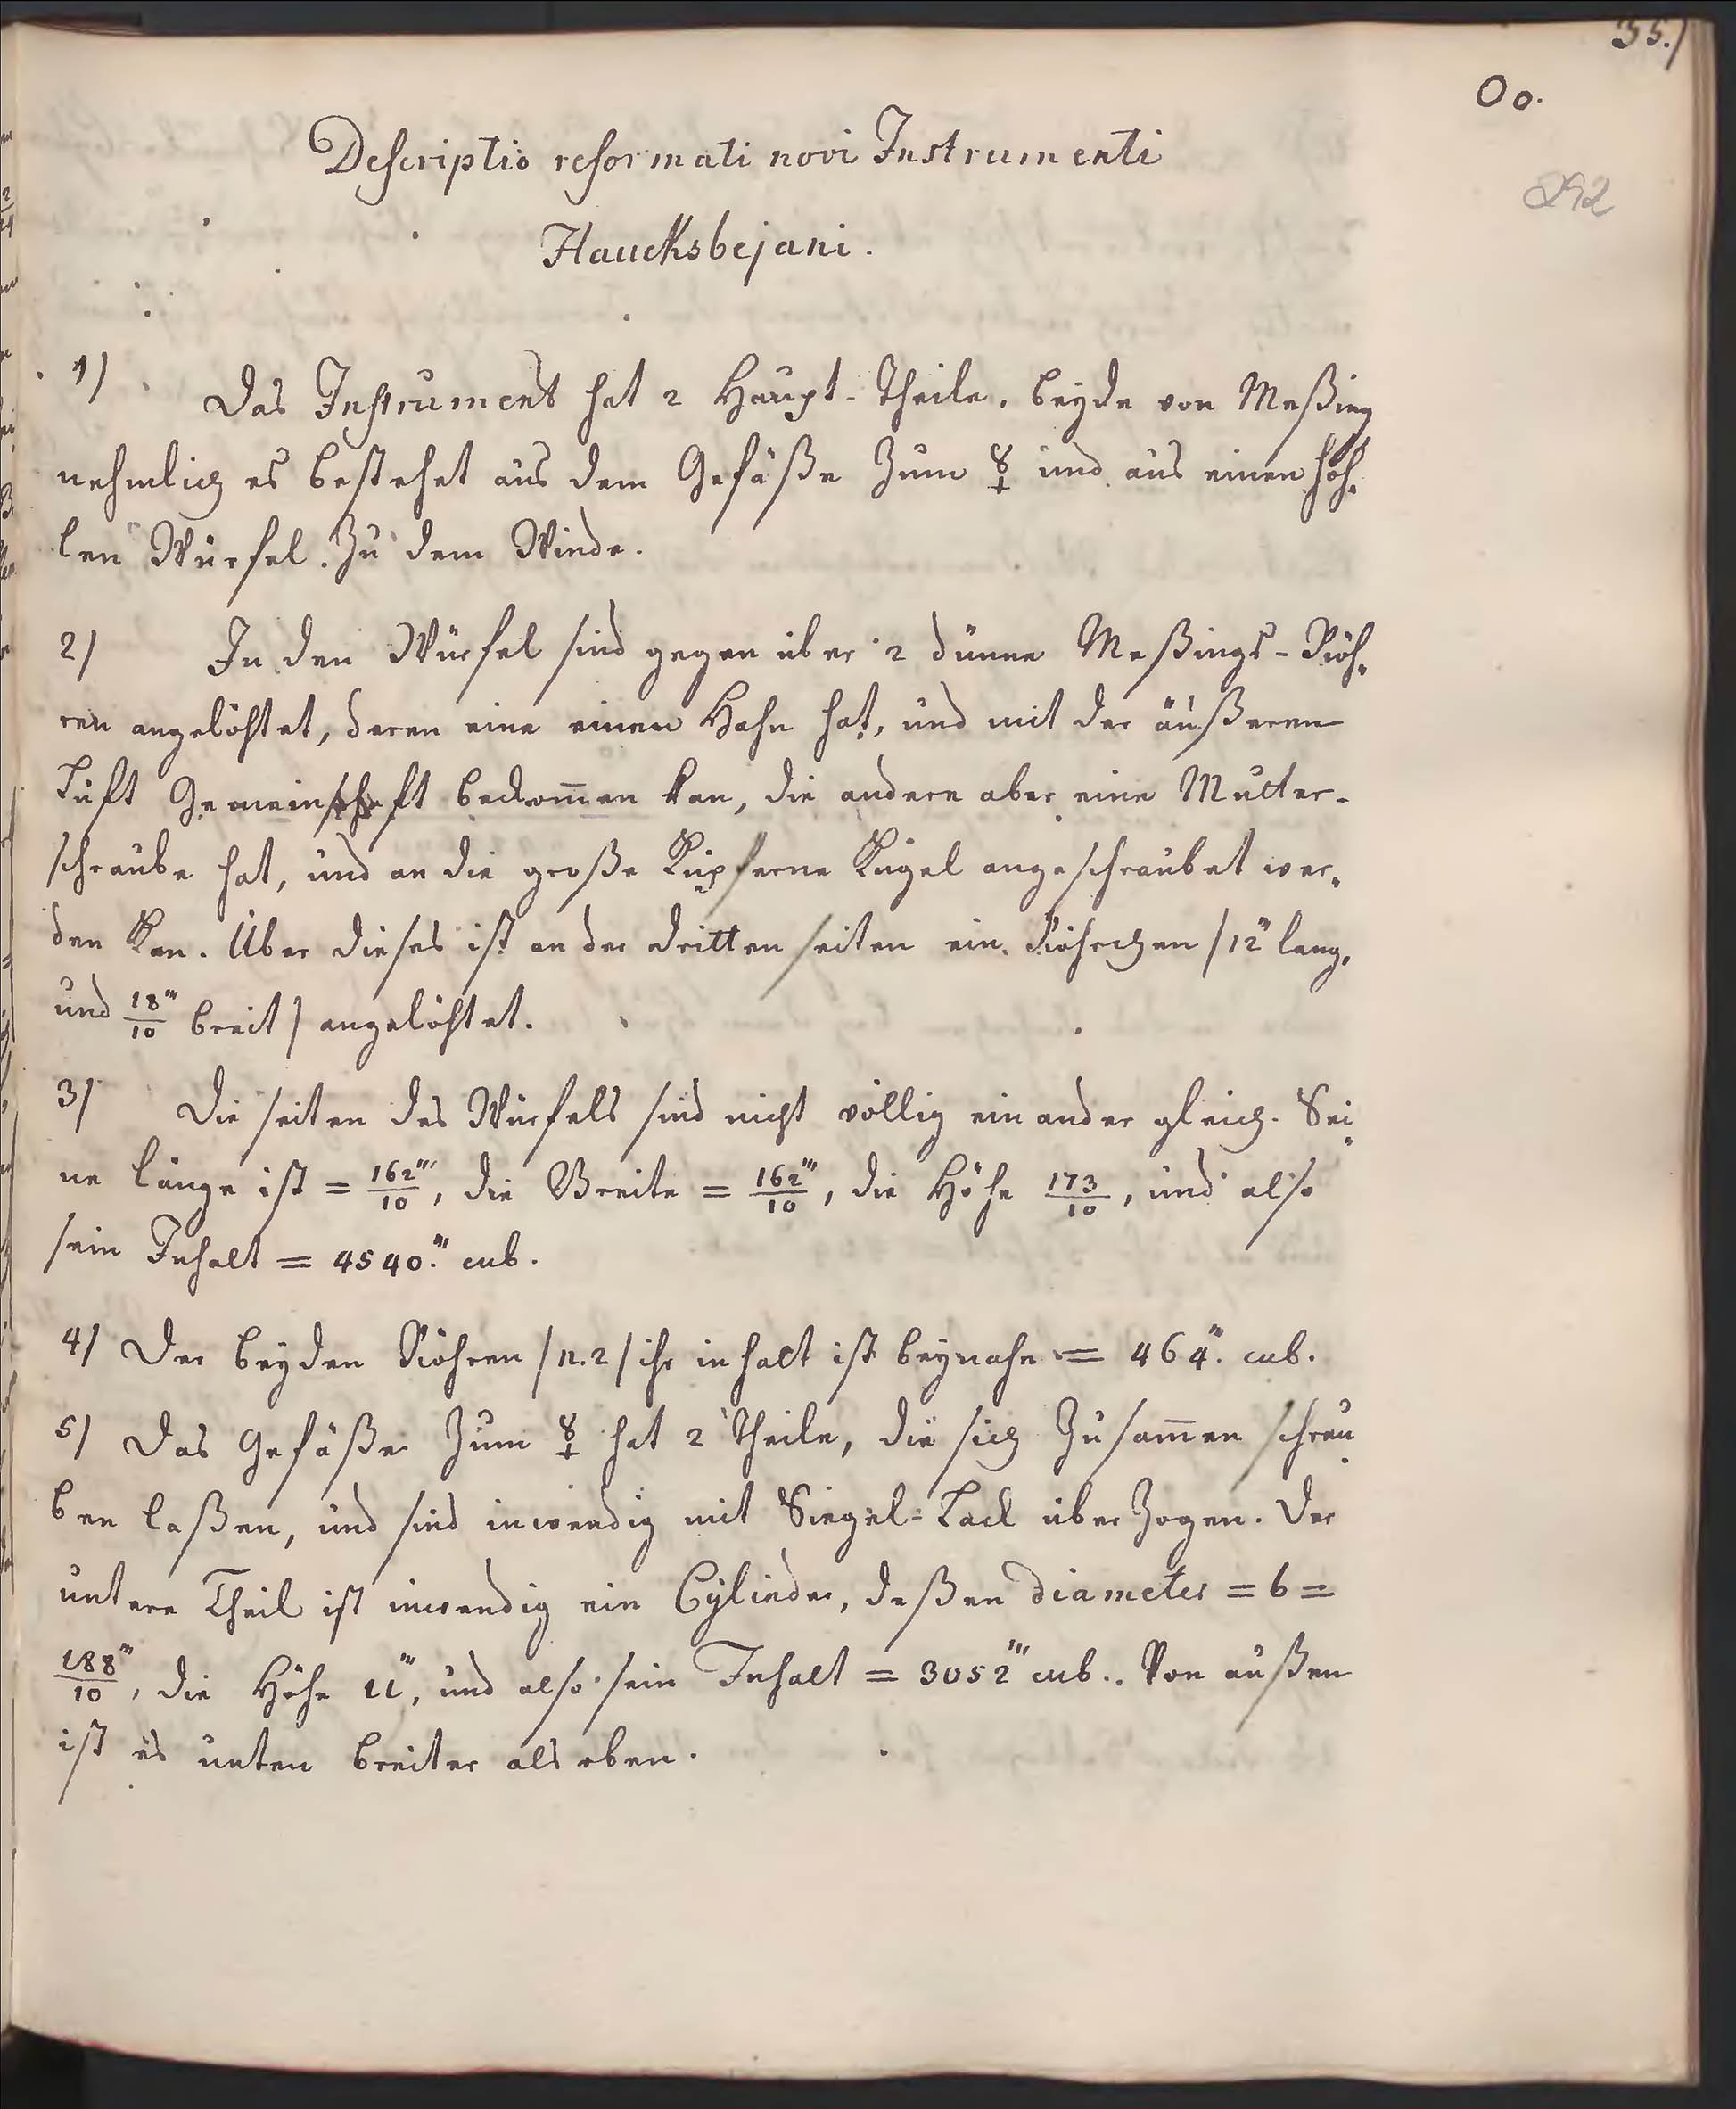 35.)
Oo.
292
Descriptio reformati novi Instrumenti
Haucksbejani.
1) Das Instrument hat 2 Haupt-Theile. beyde von Meßing
nehmlich es bestehet aus dem Gefäße zum ☿ und aus einen hoh-
len Würfel. zu dem Winde.
2) In den Würfel sind gegen über 2 dünne Meßings-Röh-
ren angelöhtet, deren eine einen Hahn hat, und mit der äußeren
Luft Gemeinschaft beckom̄en kan, die andere aber eine Mutter-
schraube hat, und an die große Kupferne Kugel angeschraubet wer-
den kan. Über dieses ist an der dritten seiten ein Röhrchen /12''' lang,
und 18'''/10 breit/ angelöhtet.
3) Die seiten des Würfels sind nicht völlig ein ander gleich. Sei-
ne länge ist = 162'''/10, die Breite = 162'''/10, die Höhe 173/10, und also
sein Inhalt = 4540.''' cub.
4) Der beyden Röhren /n.2/ ihr inhalt ist beynahe = 464.''' cub.
5) Das Gefäße zum ☿ hat 2 Theile, die sich zusam̄en schrau-
ben laßen, und sind inwendig mit Siegel=Lack überzogen. Der
untere Theil ist inwendig ein Cylinder, deßen diameter = b =
188'''/10, die Höhe 11''', und also sein Inhalt = 3052''' cub.. Von außen
ist es unten breiter als oben.